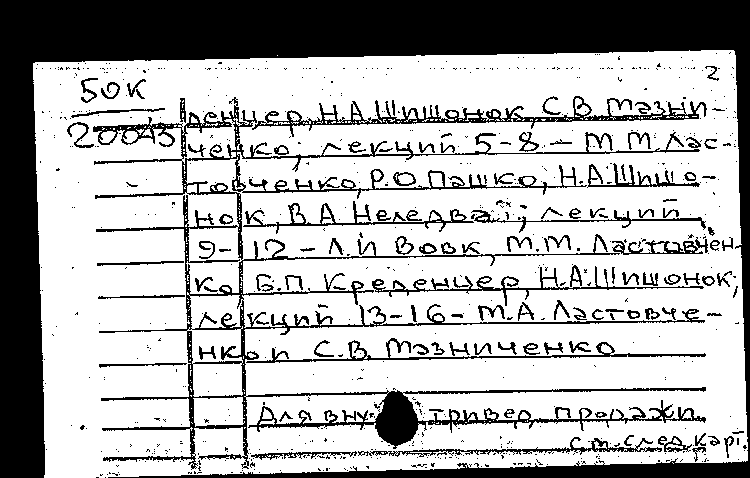 2
50К
20043
денцер, Н.А.Шишонок, С.В. Мазни-
ченко; лекций 5-8 - М.М. Лас-
товченко, Р.О. Пашко, Н.А.Шишо-
нок, В.А. Неледва; лекций
9-12 - Л.Й Вовк, М.М. Ластовчен-
ко, Б.П. Креденцер, Н.А.Шишонок;
лекций 13-16 - М.А. Ластовче-
нко и С.В. Мазниченко
Для вну тривед. продажи
см. след. карт.